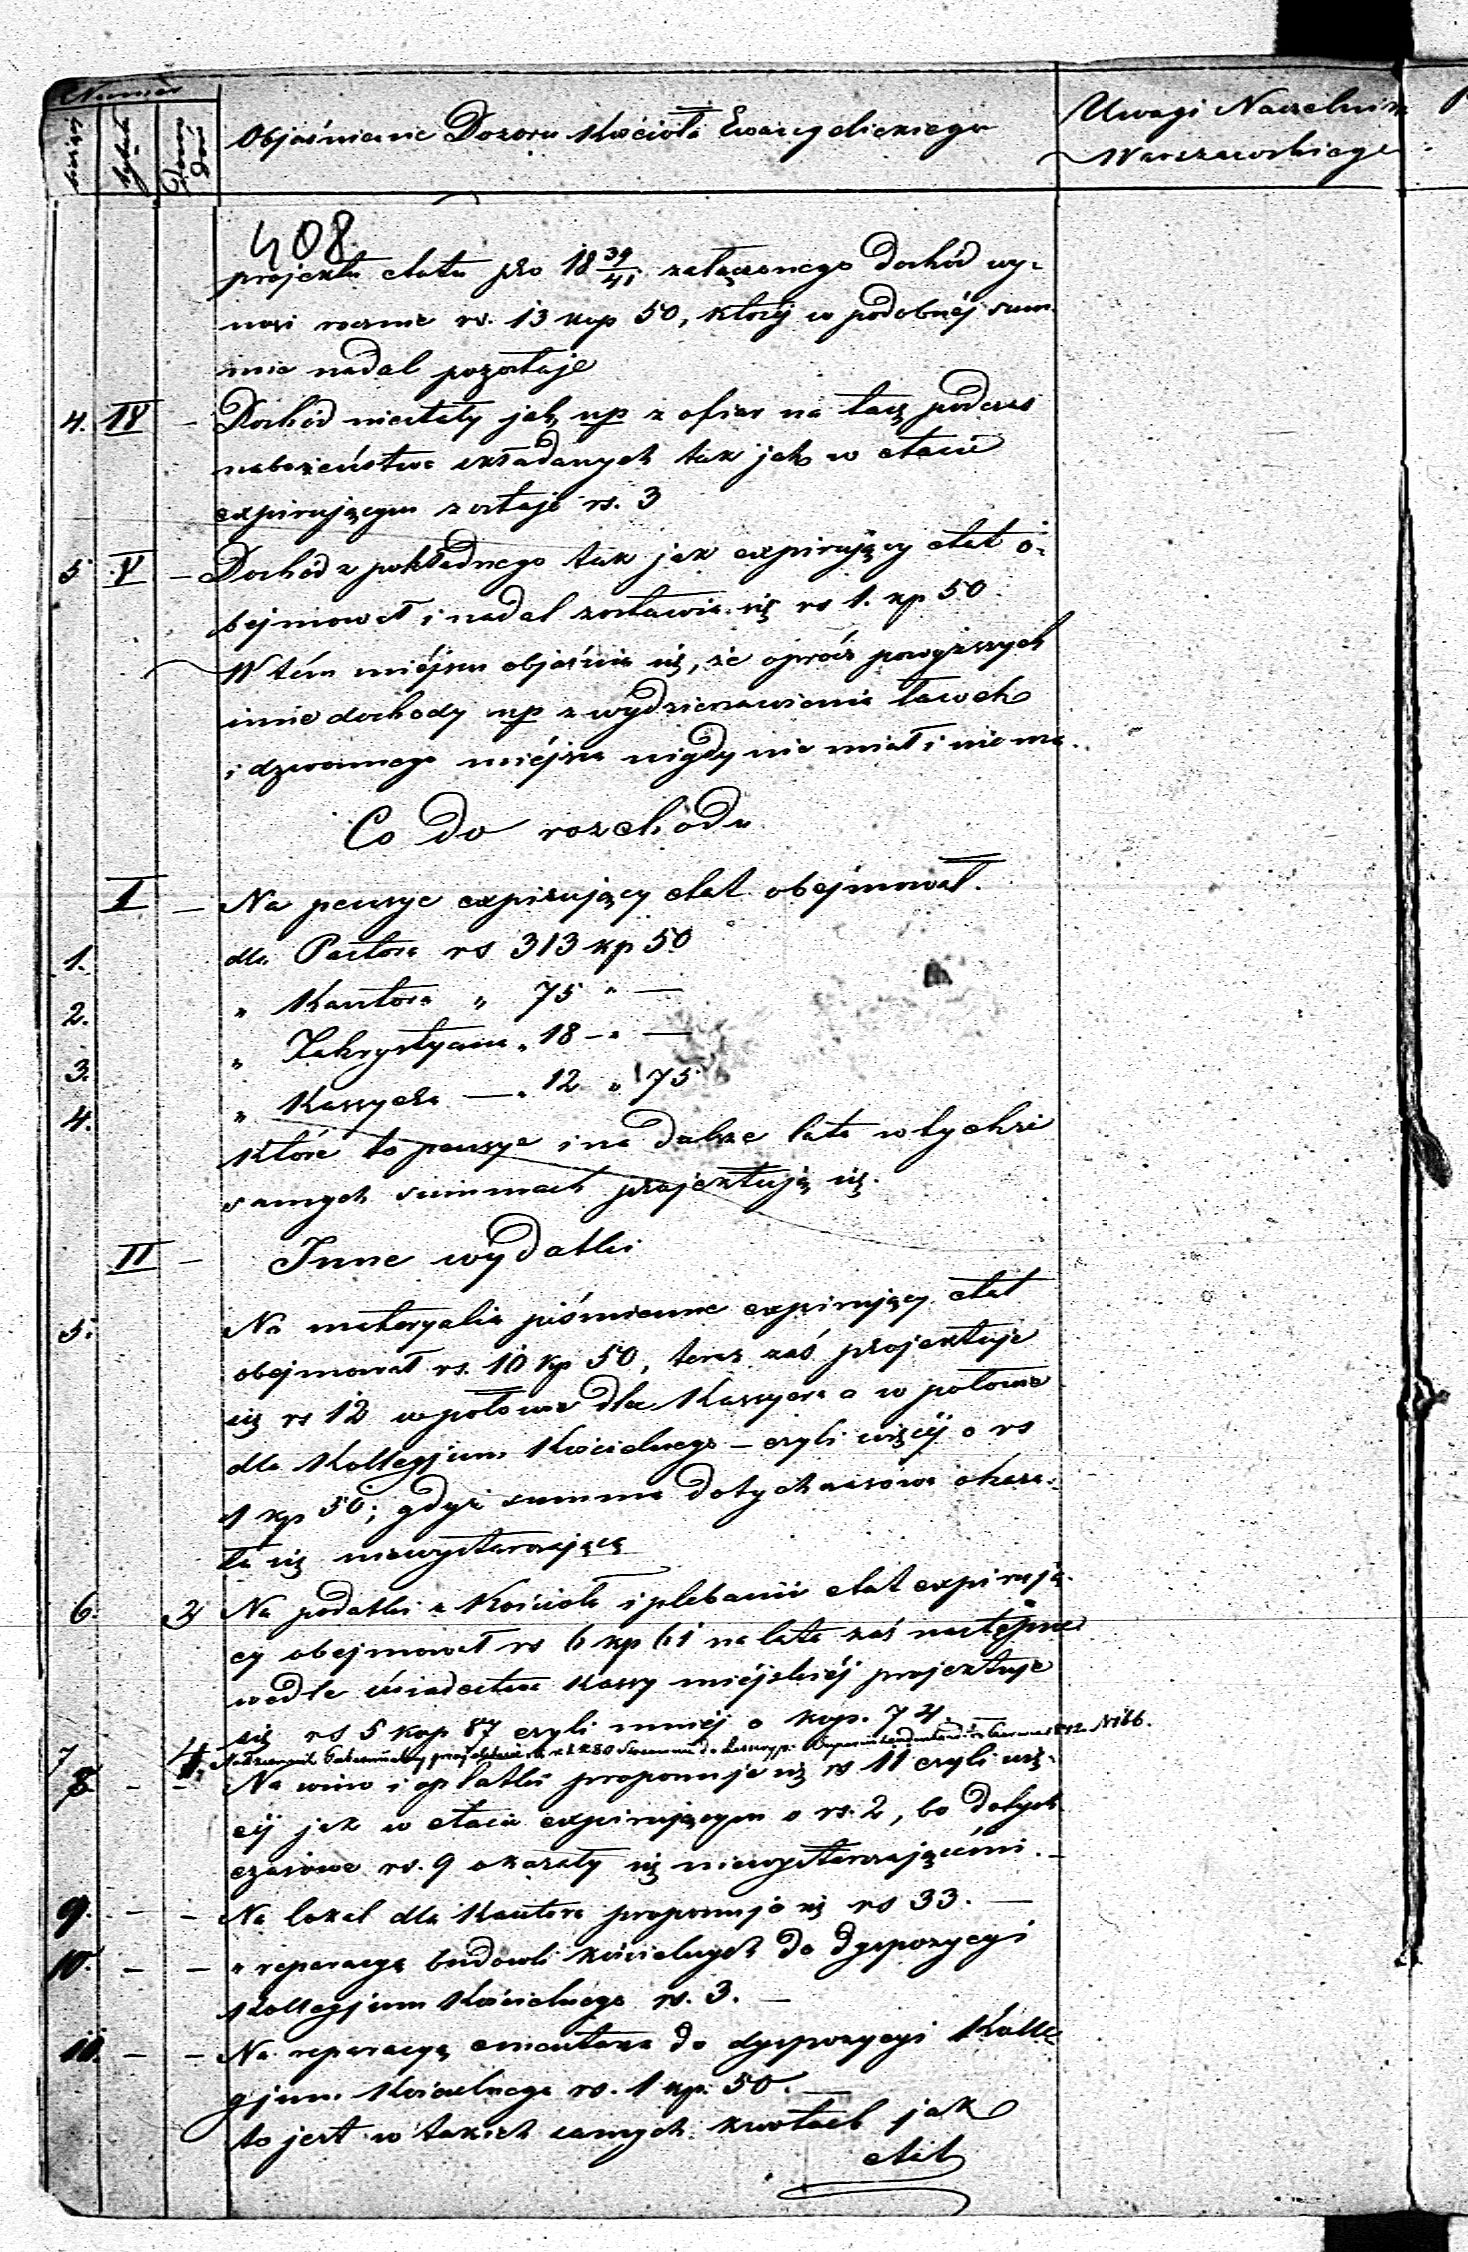 Numer
bieżący
tytułu
Objaśnienie Dozoru Kościoła Ewangelickiego
Uwagi Naczelnika
Warszawskiego
408
projektu etatu pro 18 39/41 załączonego dochód wy-
nosi rocznie rs. 13 kop 50, który w podobnéj sum-
mie nadal pozostaje
4. IV - Dochód niestały jak np z ofiar na tacę podczas
nabożeństwa składanych tak jak w etacie
expirującym zostaje rs. 3
5 V - Dochód z pokładnego tak jak expirujący etat o-
bejmował i nadal zostawia się rs 1. kp 50
W tém miéjscu objaśnia się, że oprócz powyższych
inne dochody np z wydzierżawienia ławek
i dzwonnego miéjsca nigdy nie miał i nie ma.
Co do rozchodu
I - Na pensye expirujący etat obejmował.
1. dla Pastora rs 313 kp 50
2. " Kantora " 75 " —
3. " Zakrystyana " 18 - " —
4. " Kassyera — " 12 " 75
które to pensye i na dalsze lata w tychże
samych summach projektują się.
II - Inne wydatki
5. Na materyalia piśmienne expirujący etat
obejmował rs. 10 kp 50, teraz zaś projektuje
się rs 12 w połowie dla Kassyera a w połowie
dla Kollegjum Kościelnego - czyli więcéj o rs
1 kp 50; gdyż summa dotychczasowa okaza-
ła się niewystarczającą
6. 3 Na podatki z Kościoła i plebanii etat expirują-
cy obejmował rs 6 kp 61 na lata zaś następne
wedle świadectwa Kassy miéjskiéj projektuje
się rs 5 kop 87 czyli mniéj o kop. 74.
7 4. Na N166.
8 - - Na wino i opłatki proponuje się rs 11 czyli wię-
céj jak w etacie expirującym o rs. 2, bo dotych-
czasowe rs. 9 okazały się niewystarczającémi. -
9. - - Na lokal dla Kantora proponuje się rs 33. —
10. - - " reperacyą budowli kościelnych do dyspozycyi
Kollegjum Kościelnego rs. 3. —
11. - - Na reperacyą cmentarza do dyspozycyi Kolle
gjum Kościelnego rs. 1 kp. 50. —
to jest w takich samych kwotach jak
etat